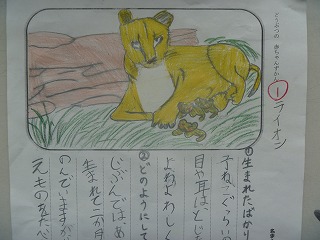 どうぶつの 赤ちゃんずかん
① ライオン
① 生まれたばかり
子ねこぐらいの
目や耳はとじ
よわよわしく
② どのようにして
じぶんではあ
生まれて二か月
のんでいますが
えものをたべ